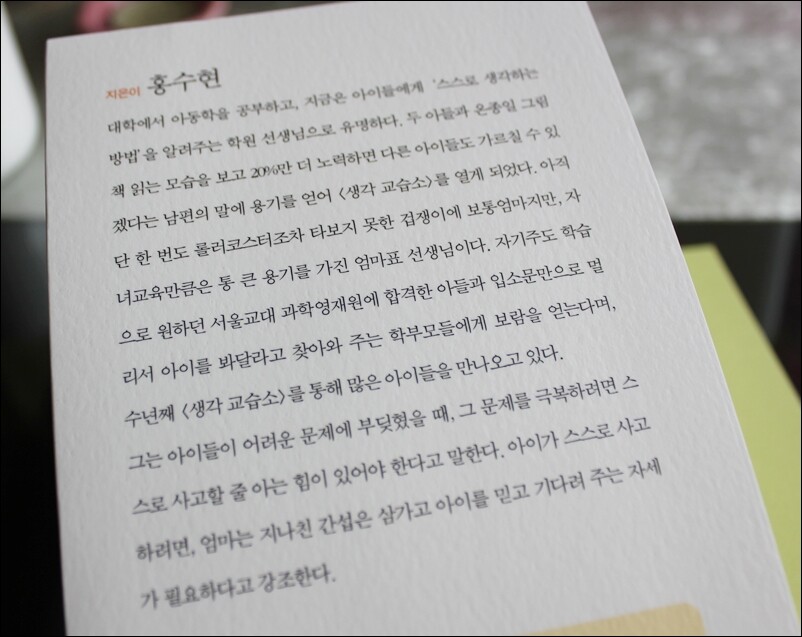 지은이 홍수현
대학에서 아동학을 공부하고, 지금은 아이들에게 '스스로 생각하는
방법'을 알려주는 학원 선생님으로 유명하다. 두 아들과 온종일 그림
책 읽는 모습을 보고 20%만 더 노력하면 다른 아이들도 가르칠 수 있
겠다는 남편의 말에 용기를 얻어 〈생각 교습소〉를 열게 되었다. 아직
단 한 번도 롤러코스터조차 타보지 못한 겁쟁이에 보통엄마지만, 자
녀교육만큼은 통 큰 용기를 가진 엄마표 선생님이다. 자기주도 학습
으로 원하던 서울교대 과학영재원에 합격한 아들과 입소문만으로 멀
리서 아이를 봐달라고 찾아와 주는 학부모들에게 보람을 얻는다며,
수년째 〈생각 교습소〉를 통해 많은 아이들을 만나오고 있다.
그는 아이들이 어려운 문제에 부딪혔을 때, 그 문제를 극복하려면 스
스로 사고할 줄 아는 힘이 있어야 한다고 말한다. 아이가 스스로 사고
하려면, 엄마는 지나친 간섭은 삼가고 아이를 믿고 기다려 주는 자세
가 필요하다고 강조한다.